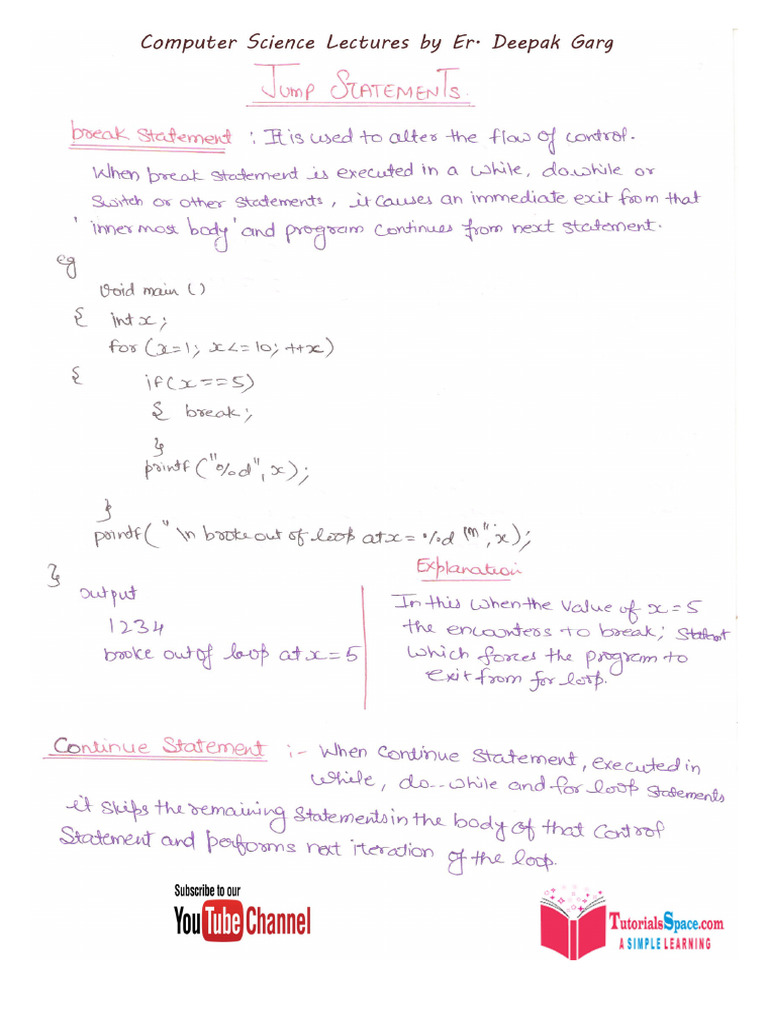 Computer Science Lectures by Er. Deepak Garg
JUMP STATEMENTS.
break statement : It is used to alter the flow of control.
When break statement is executed in a while, do.while or
Switch or other statements, it causes an immediate exit from that
'inner most body' and program continues from next statement.
eg
Void main ()
{ int x;
for (x=1; x<=10; ++x)
{ if(x==5)
{ break;
}
printf("%d", x);
}
printf("\n broke out of loop at x = %d \n", x);
}
output
1234
broke out of loop at x=5
Explanation
In this when the value of x=5
the encounters to break;
which forces the program to
exit from for loop.
Continue Statement :- When Continue Statement, executed in
while, do--while and for loop statements
it skips the remaining statements in the body of that Control
Statement and performs next iteration of the loop.
Subscribe to our
YouTube Channel
TutorialsSpace.com
A SIMPLE LEARNING